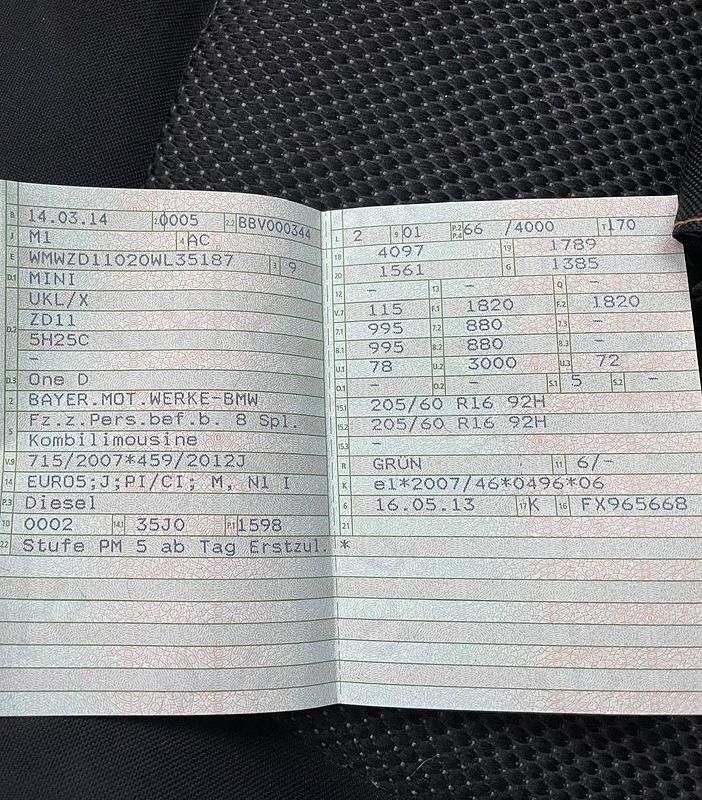 B 14.03.14 2.1 0005 2.2 BBV000344
J M1 4 AC
E WMWZD11020WL35187 3 9
D.1 MINI
UKL/X
D.2 ZD11
5H25C
–
D.3 One D
2 BAYER.MOT.WERKE-BMW
5 Fz.z.Pers.bef.b. 8 Spl.
Kombilimousine
V.9 715/2007*459/2012J
14 EURO5;J;PI/CI; M, N1 I
P.3 Diesel
10 0002 14.1 35J0 P.1 1598
22 Stufe PM 5 ab Tag Erstzul. *
L 2 9 01 P.2 P.4 66 /4000 T 170
18 4097 19 1789
20 1561 G 1385
12 – 13 – Q –
V.7 115 F.1 1820 F.2 1820
7.1 995 7.2 880 7.3 –
8.1 995 8.2 880 8.3 –
U.1 78 U.2 3000 U.3 72
O.1 – O.2 – S.1 5 S.2 –
15.1 205/60 R16 92H
15.2 205/60 R16 92H
15.3 –
R GRÜN 11 6/–
K e1*2007/46*0496*06
6 16.05.13 17 K 16 FX965668
21